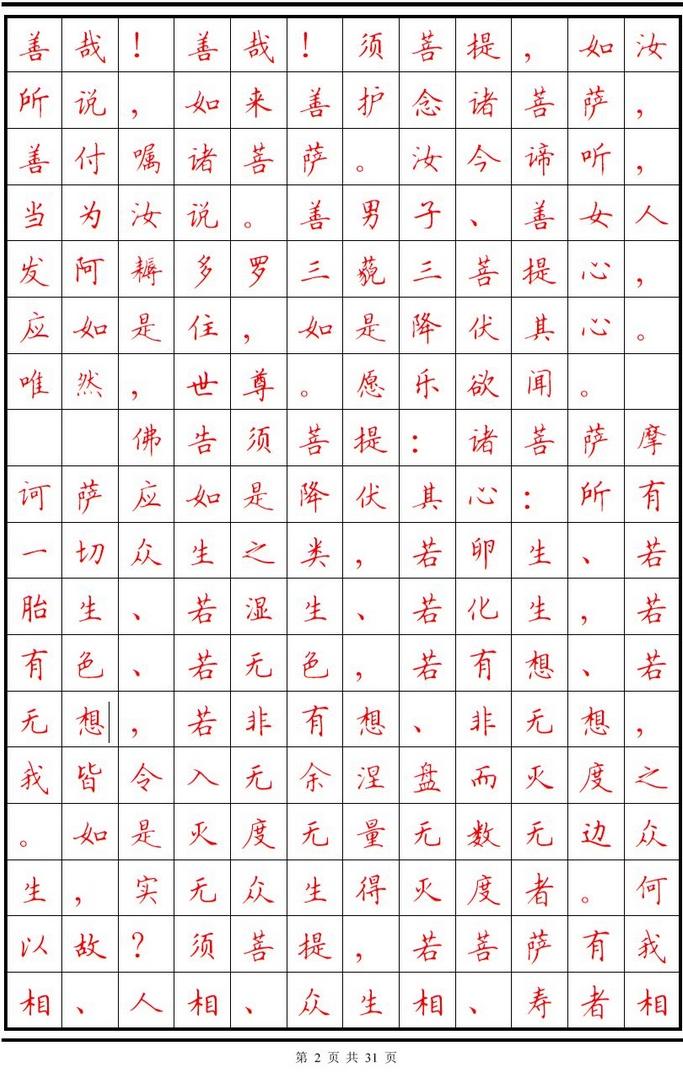 善哉！善哉！须菩提，如汝
所说，如来善护念诸菩萨，
善付嘱诸菩萨。汝今谛听，
当为汝说。善男子、善女人
发阿耨多罗三藐三菩提心，
应如是住，如是降伏其心。
唯然，世尊。愿乐欲闻。
佛告须菩提：诸菩萨摩
诃萨应如是降伏其心：所有
一切众生之类，若卵生、若
胎生、若湿生、若化生，若
有色、若无色，若有想、若
无想，若非有想、非无想，
我皆令入无余涅盘而灭度之
。如是灭度无量无数无边众
生，实无众生得灭度者。何
以故？须菩提，若菩萨有我
相、人相、众生相、寿者相
第 2 页 共 31 页